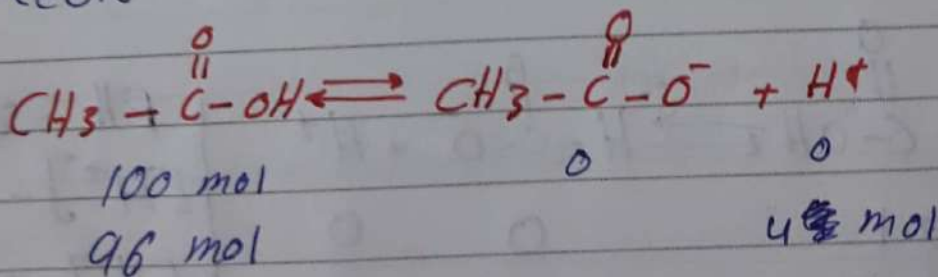 O O
|| ||
CH3 - C - OH ⇌ CH3 - C - O⁻ + H⁺
100 mol 0 0
96 mol 4 mol